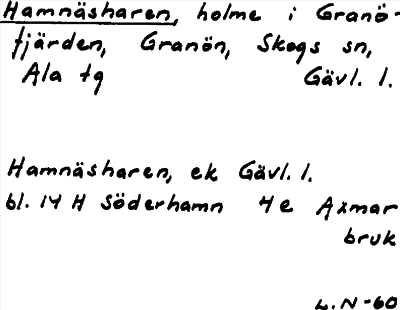 Hamnäsharen, holme i Granö-
fjärden, Granön, Skogs sn,
Ala tg Gävl. l.
Hamnäsharen, ek Gävl. l.
bl. 14 H Söderhamn 4e Axmar
bruk
L.N-60